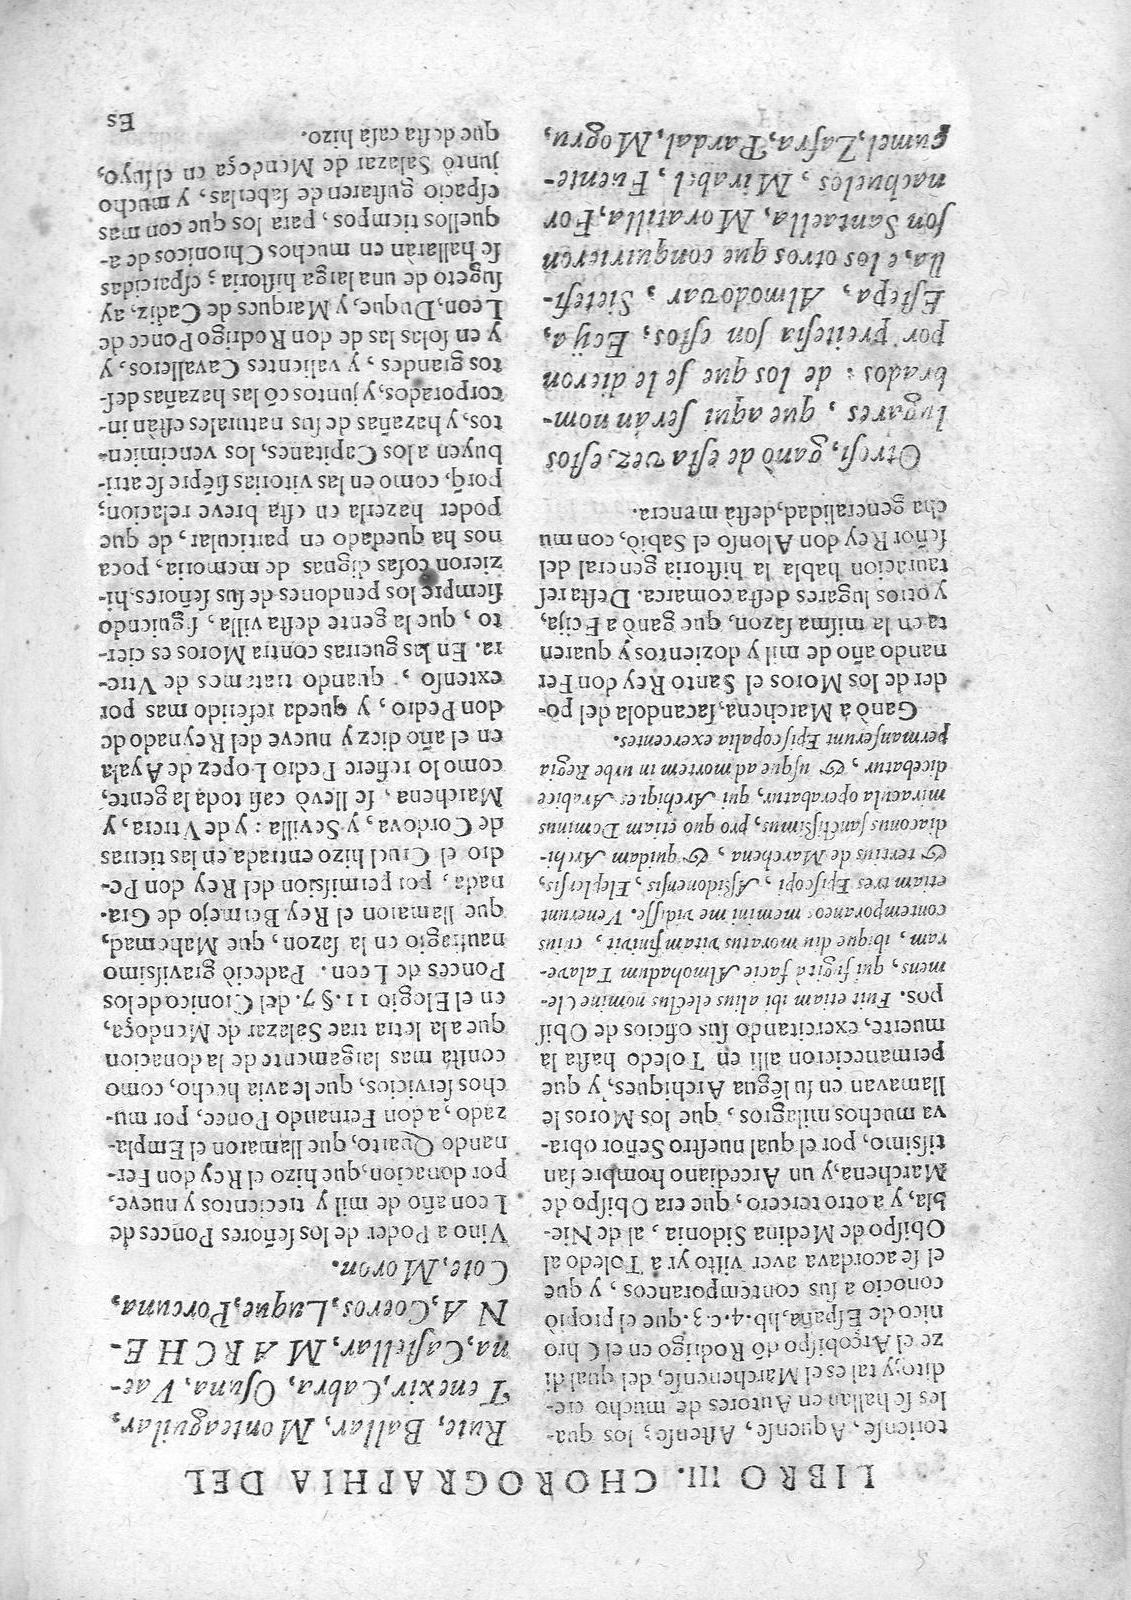 LIBRO III. CHOROGRAPHIA DEL
toriense, Aquense, Astense; los qua-
les se hallan en Autores de mucho cre-
dito; y tal es el Marchenense, del qual di
ze el Arçobispo dō Rodrigo en el Chro
nico de España, lib. 4. c. 3. que el propio
conocio a sus contemporaneos, y que
el se acordava aver visto yr a Toledo al
Obispo de Medina Sidonia, al de Nie-
bla, y a otro tercero, que era Obispo de
Marchena, y un Arcediano hombre san
tissimo, por el qual nuestro Señor obra-
va muchos milagros, que los Moros le
llamavan en su lēgua Archiques, y que
permanecieron alli en Toledo hasta la
muerte, exercitando sus oficios de Obis
pos. Fuit etiam ibi alius electus nomine Cle-
mens, qui fugit à facie Almohadum Talave-
ram, ibique diu moratus vitam finivit, cuius
contemporaneos memini me vidisse. Venerunt
etiam tres Episcopi, Assidonensis, Eleplensis,
& tertius de Marchena, & quidam Archi-
diaconus sanctissimus, pro quo etiam Dominus
miracula operabatur, qui Archiqes Arabice
dicebatur, & usque ad mortem in urbe Regia
permanserunt Episcopalia exercentes.
Ganò a Marchena, sacandola del po-
der de los Moros el Santo Rey don Fer
nando año de mil y dozientos y quaren
ta en la misma sazon, que ganò a Ecija,
y otros lugares desta comarca. Desta res
tauracion habla la historia general del
señor Rey don Alonso el Sabio, con mu
cha generalidad, desta manera.
Otrosi, ganò de esta vez, estos
lugares, que aqui seràn nom-
brados: de los que se le dieron
por preitesia son estos; Ecija,
Estepa, Almodovar, Sietefi-
lla, e los otros que conquirieren
son Santaella, Moratilla, For
nachuelos, Mirabel, Fuente-
çumel, Zafra, Pardal, Mogru,
Rute, Ballar, Monteaguilar,
Tenexir, Cabra, Osuna, Vae-
na, Castellar, MARCHE-
NA, Coeros, Luque, Porcuna,
Cote, Moron.
Vino a Poder de los señores Ponces de
Leon año de mil y trecientos y nueve,
por donacion, que hizo el Rey don Fer-
nando Quarto, que llamaron el Empla-
zado, a don Fernando Ponce, por mu-
chos servicios, que le avia hecho, como
consta mas largamente de la donacion
que a la letra trae Salazar de Mendoça,
en el Elogio 11. §. 7. del Cronico de los
Ponces de Leon. Padeciò gravissimo
naufragio en la sazon, que Mahemad,
que llamaron el Rey Bermejo de Gra-
nada, por permission del Rey don Pe-
dro el Cruel hizo entrada en las tierras
de Cordova, y Sevilla: y de Vtrera, y
Marchena, se llevò casi toda la gente,
como lo refiere Pedro Lopez de Ayala
en el año diez y nueve del Reynado de
don Pedro, y queda referido mas por
extenso, quando tratemos de Vtre-
ra. En las guerras contra Moros es cier-
to, que la gente desta villa, siguiendo
siempre los pendones de sus señores, hi-
zieron cosas dignas de memoria, poca
nos ha quedado en particular, de que
poder hazerla en esta breve relacion;
porq̄, como en las vitorias siēpre se atri-
buyen a los Capitanes, los vencimien-
tos, y hazañas de sus naturales estàn in-
corporados, y juntos cō las hazañas des-
tos grandes, y valientes Cavalleros, y
y en solas las de don Rodrigo Ponce de
Leon, Duque, y Marques de Cadiz, ay
sugeto de una larga historia; esparcidas
se hallaràn en muchos Chronicos de a-
quellos tiempos, para los que con mas
espacio gustaren de saberlas, y mucho
juntò Salazar de Mendoça en el suyo,
que desta casa hizo.
Es